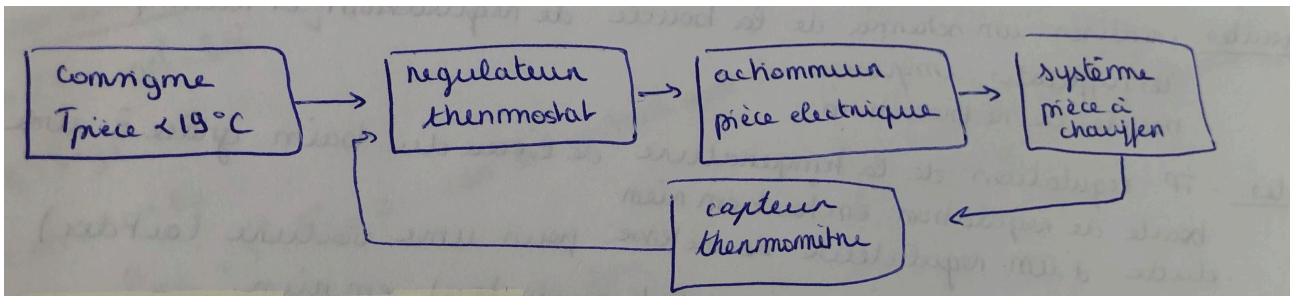 consigne
Tpièce < 19°C
regulateur
thermostat
actionneur
pièce electrique
système
pièce à
chauffer
capteur
thermomètre